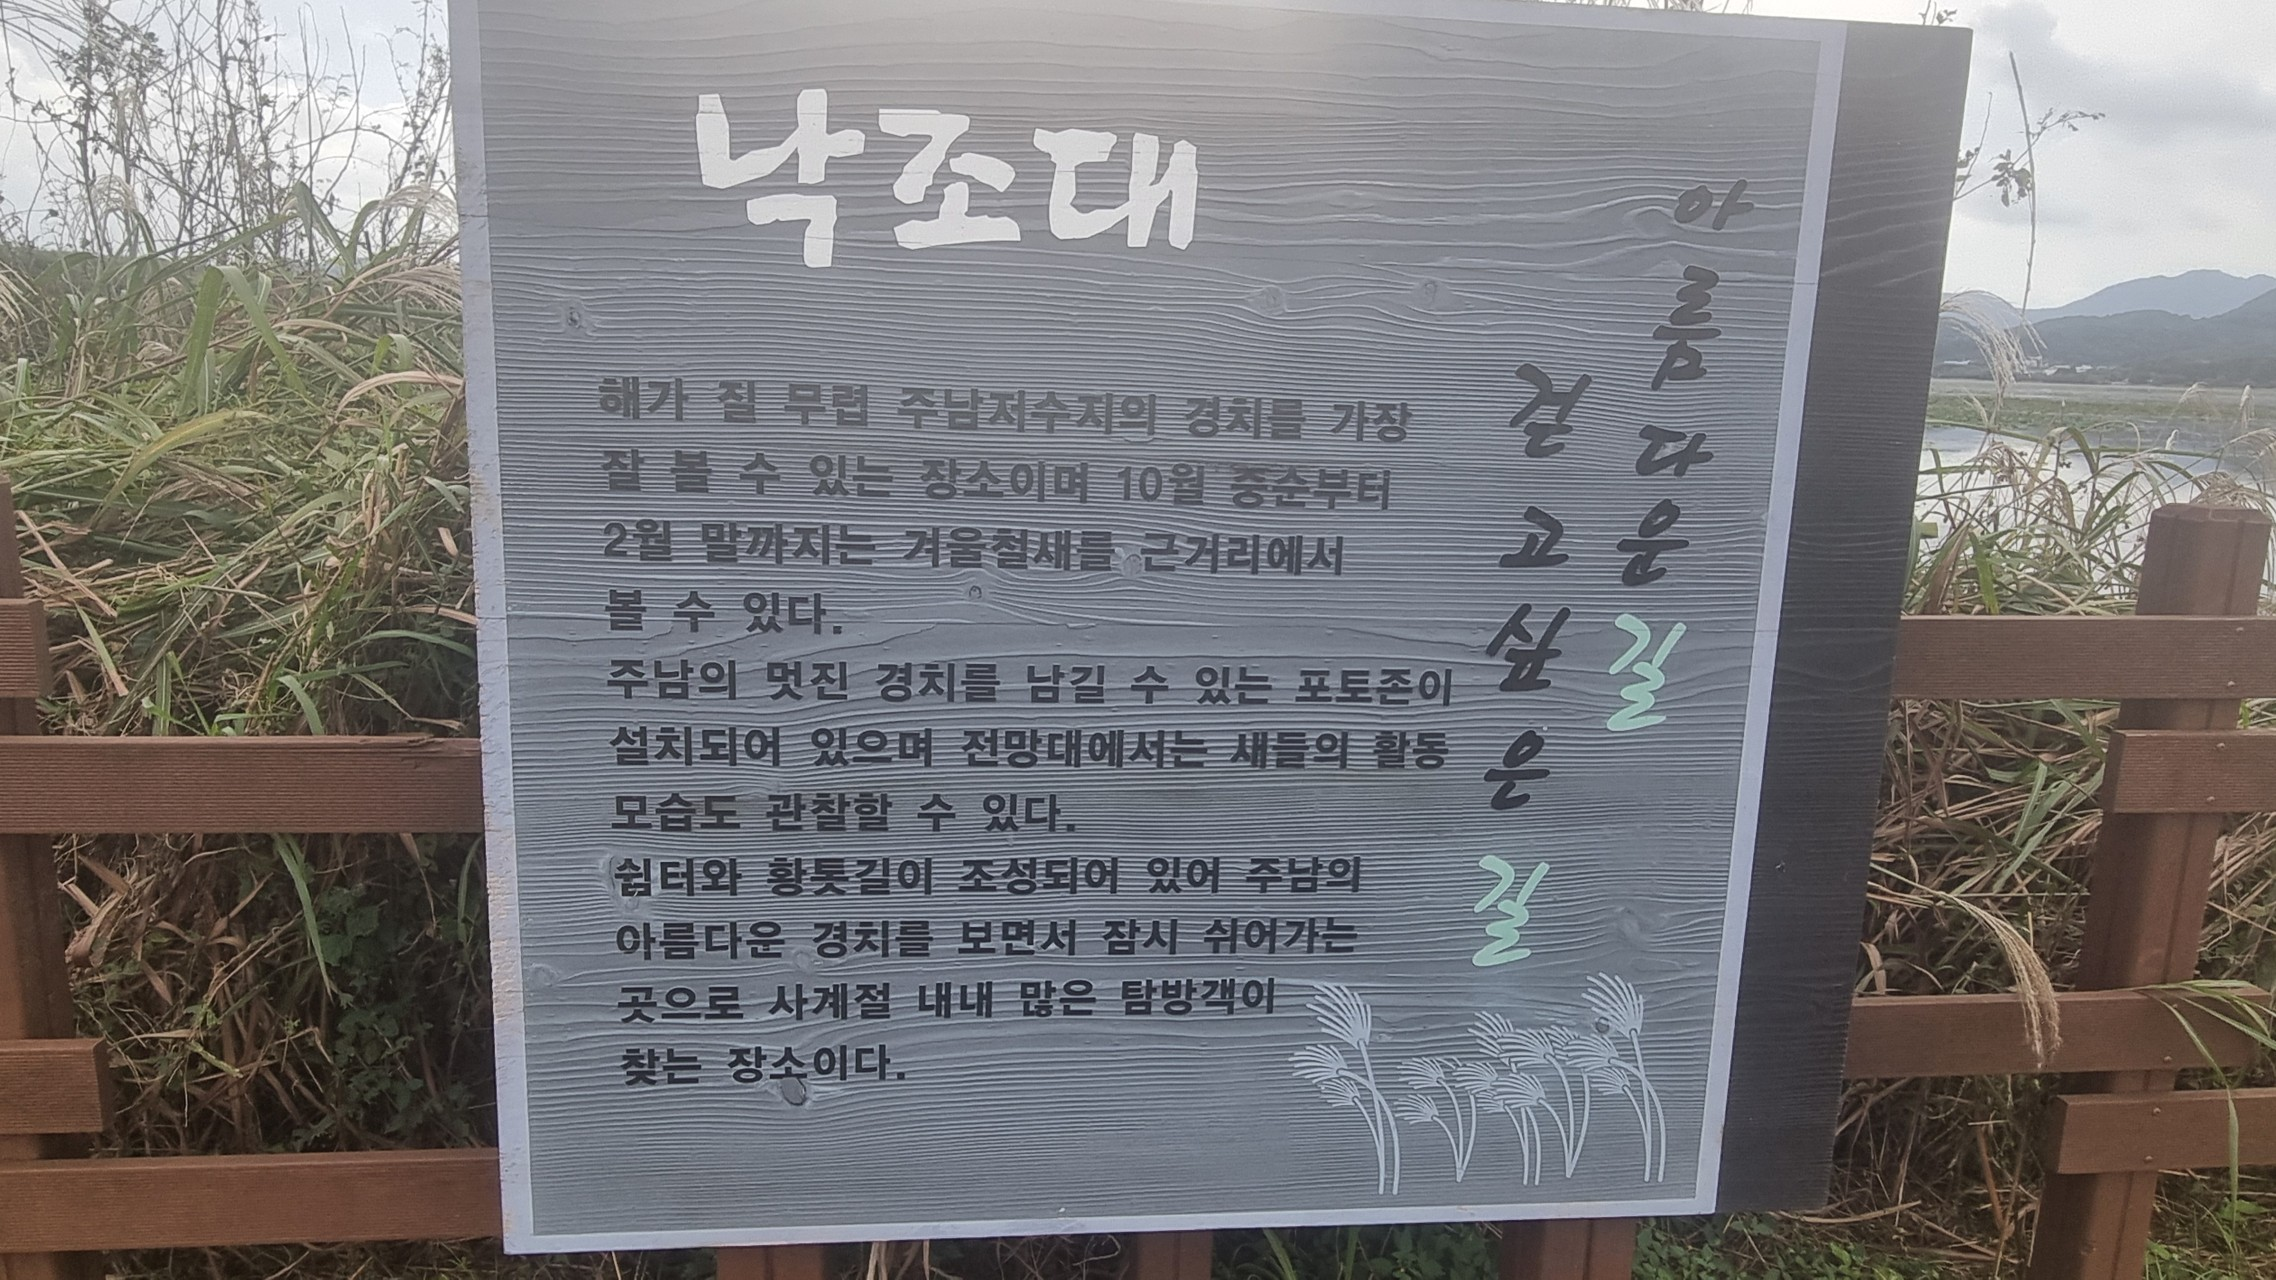 낙조대
해가 질 무렵 주남저수지의 경치를 가장
잘 볼 수 있는 장소이며 10월 중순부터
2월 말까지는 겨울철새를 근거리에서
볼 수 있다.
주남의 멋진 경치를 남길 수 있는 포토존이
설치되어 있으며 전망대에서는 새들의 활동
모습도 관찰할 수 있다.
쉼터와 황톳길이 조성되어 있어 주남의
아름다운 경치를 보면서 잠시 쉬어가는
곳으로 사계절 내내 많은 탐방객이
찾는 장소이다.
아름다운 길
걷고 싶은 길